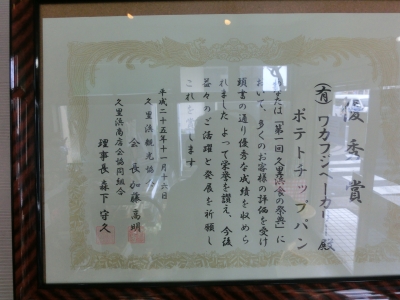 優秀賞
ポテトチップパン
(有)ワカフジベーカリー殿
あなたは「第一回久里浜食の祭典」に
おいて、多くのお客様の評価を受け
頭書の通り優秀な成績を収めら
れました よって栄誉を讃え、今後
益々のご活躍と発展を祈願し
これを賞します
平成二十五年十一月十六日
久里浜観光協会
会長 加藤高明
久里浜商店会協同組合
理事長 森下守久